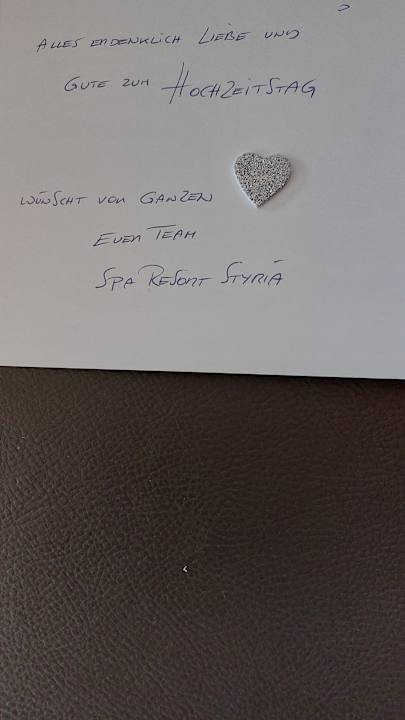 ALLES ERDENKLICH LIEBE UND
GUTE ZUM HOCHZEITSTAG
WÜNSCHT VON GANZEN
EUER TEAM
SPA RESORT STYRIA